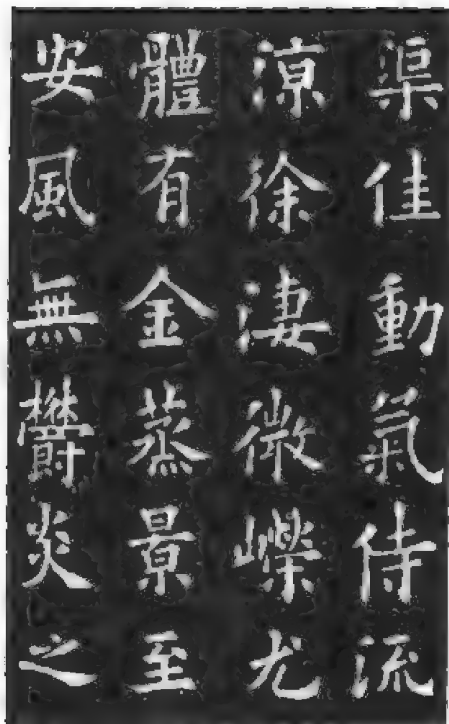 渠佳動氣侍流
涼徐淒微嶸尤
體有金蒸景至
安風無欝炎之